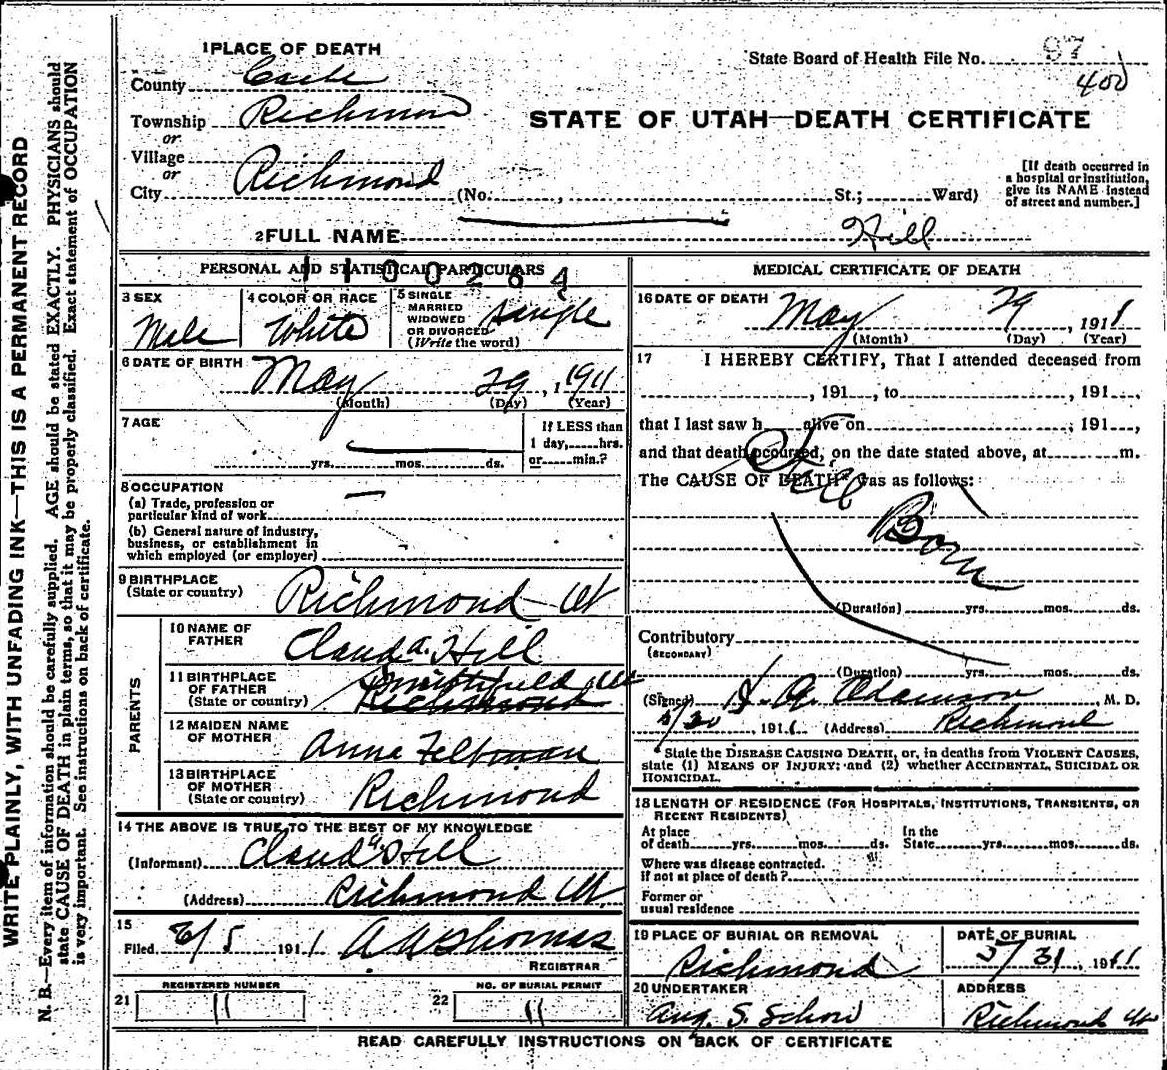 WRITE PLAINLY, WITH UNFADING INK—THIS IS A PERMANENT RECORD
N. B.—Every item of information should be carefully supplied. AGE should be stated EXACTLY. PHYSICIANS should
state CAUSE OF DEATH in plain terms, so that it may be properly classified. Exact statement of OCCUPATION
is very important. See instructions on back of certificate.
1 PLACE OF DEATH
County Cache
Township Richmond
or
Village
or
City Richmond (No. , St.; Ward)
State Board of Health File No. 97
400
STATE OF UTAH—DEATH CERTIFICATE
[If death occurred in
a hospital or institution,
give its NAME instead
of street and number.]
2 FULL NAME Hill
PERSONAL AND STATISTICAL PARTICULARS
1100264
3 SEX
Male
4 COLOR OR RACE
White
5 SINGLE
MARRIED
WIDOWED
OR DIVORCED
(Write the word)
Single
6 DATE OF BIRTH
May 29, 1911
(Month) (Day) (Year)
7 AGE
yrs. mos. ds.
If LESS than
1 day, hrs.
or min.?
8 OCCUPATION
(a) Trade, profession or
particular kind of work
(b) General nature of industry,
business, or establishment in
which employed (or employer)
9 BIRTHPLACE
(State or country)
Richmond Ut
PARENTS
10 NAME OF
FATHER
Claud A. Hill
11 BIRTHPLACE
OF FATHER
(State or country)
Smithfield Ut
Richmond
12 MAIDEN NAME
OF MOTHER
Anna
13 BIRTHPLACE
OF MOTHER
(State or country)
Richmond
14 THE ABOVE IS TRUE TO THE BEST OF MY KNOWLEDGE
(Informant) Claud A. Hill
(Address) Richmond Ut.
15
Filed 6/5 1911 A A Thomas
REGISTRAR
21 REGISTERED NUMBER
11
22 NO. OF BURIAL PERMIT
11
MEDICAL CERTIFICATE OF DEATH
16 DATE OF DEATH
May 29, 1911
(Month) (Day) (Year)
17 I HEREBY CERTIFY, That I attended deceased from
, 191 , to , 191 ,
that I last saw h alive on , 191 ,
and that death occurred, on the date stated above, at m.
The CAUSE OF DEATH* was as follows:
Still
Born
(Duration) yrs. mos. ds.
Contributory
(SECONDARY)
(Duration) yrs. mos. ds.
(Signed) Adamson, M. D.
5/30, 1911 (Address) Richmond
*State the DISEASE CAUSING DEATH, or, in deaths from VIOLENT CAUSES,
state (1) MEANS OF INJURY; and (2) whether ACCIDENTAL, SUICIDAL OR
HOMICIDAL.
18 LENGTH OF RESIDENCE (FOR HOSPITALS, INSTITUTIONS, TRANSIENTS, OR
RECENT RESIDENTS)
At place
of death yrs. mos. ds.
In the
State yrs. mos. ds.
Where was disease contracted.
if not at place of death?
Former or
usual residence
19 PLACE OF BURIAL OR REMOVAL
Richmond
DATE OF BURIAL
5/31, 1911
20 UNDERTAKER
Aug. S. Schow
ADDRESS
Richmond Ut
READ CAREFULLY INSTRUCTIONS ON BACK OF CERTIFICATE